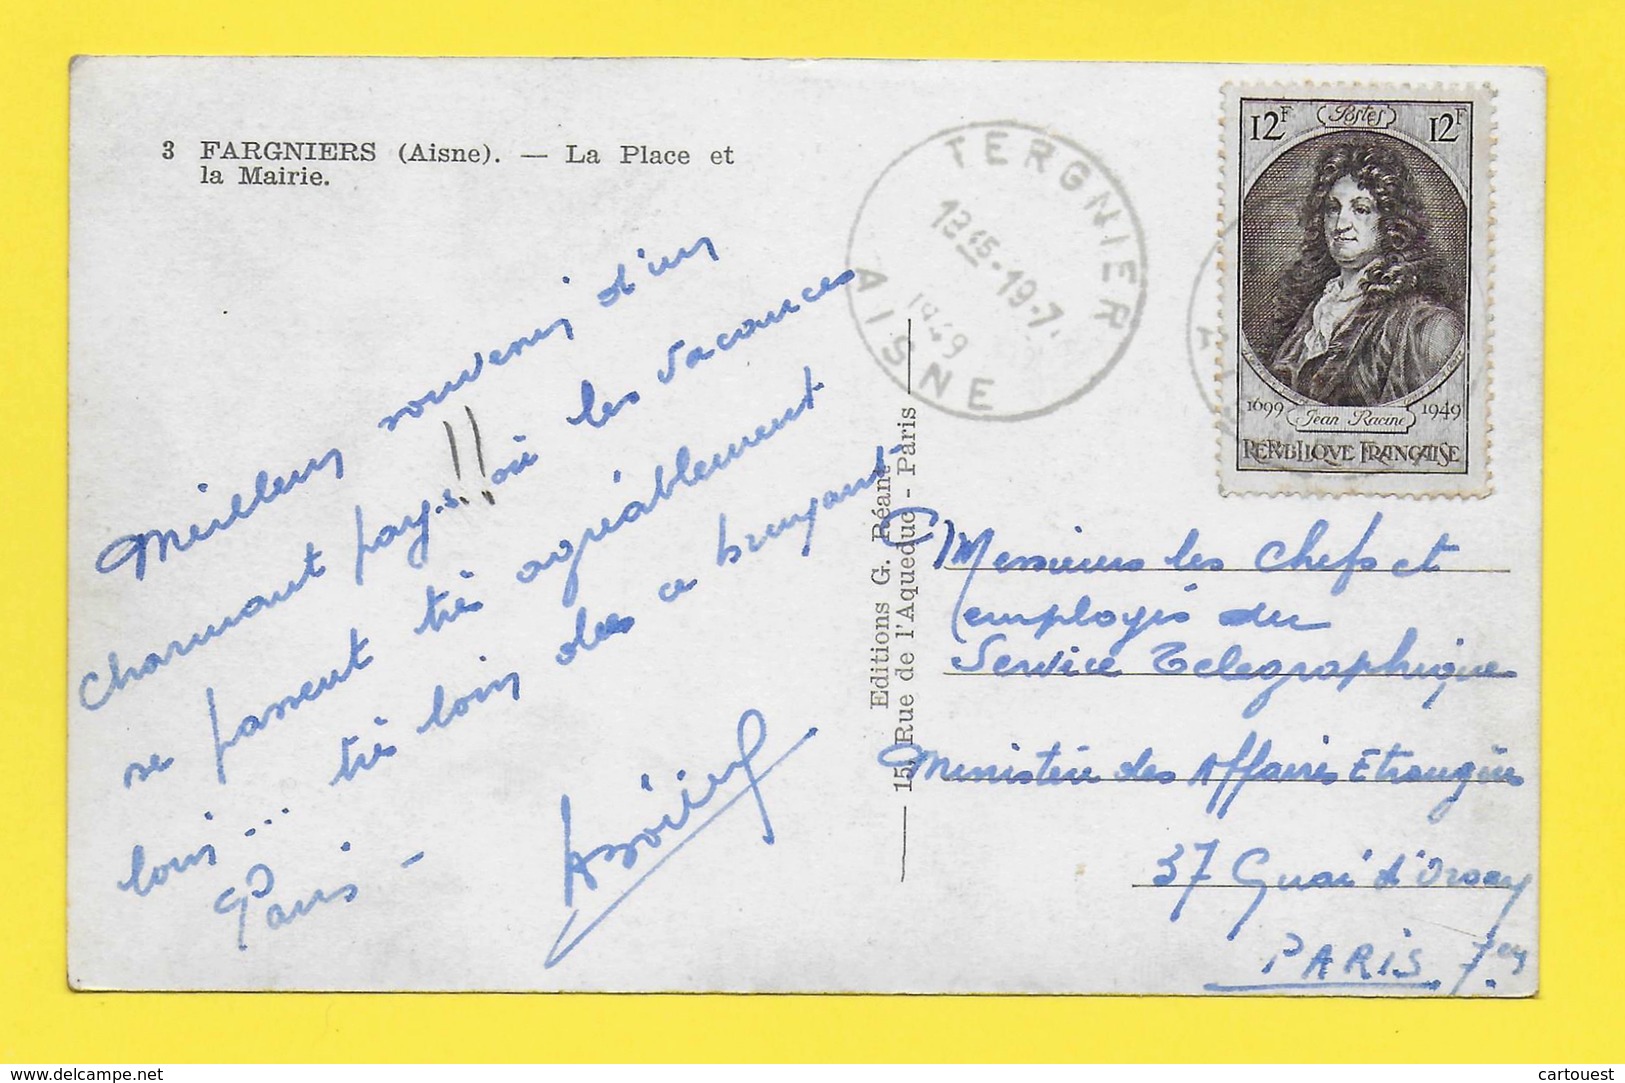 3 FARGNIERS (Aisne). — La Place et
la Mairie.
TERGNIER
1949
AISNE
12F Postes 12F
1699 Jean Racine 1949
REPUBLIQUE FRANÇAISE
Meilleurs souvenirs d'un
charmant pays!! où les vacances
se passent très agréablement
loin... très loin de ce bruyant
Paris -
Editions G. Réant
15, Rue de l'Aqueduc - Paris
Messieurs les Chefs et
employés du
Service Telegraphique
Ministère des Affaires Etrangères
37 Quai d'Orsay
PARIS 7em
cartouest